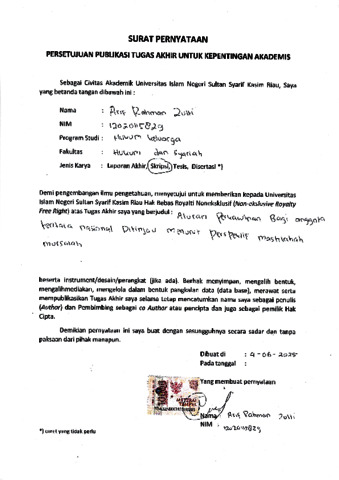 SURAT PERNYATAAN
PERSETUJUAN PUBLIKASI TUGAS AKHIR UNTUK KEPENTINGAN AKADEMIS
Sebagai Civitas Akademik Universitas Islam Negeri Sultan Syarif Kasim Riau, Saya
yang betanda tangan dibawah ini :
Nama : Arif Rahman
NIM :
Program Studi : Hukum keluarga
Fakultas : Hukum dan Syariah
Jenis Karya : Laporan Akhir, Skripsi, Tesis, Disertasi *)
Demi pengembangan ilmu pengetahuan, menyetujui untuk memberikan kepada Universitas
Islam Negeri Sultan Syarif Kasim Riau Hak Rebas Royalti Noneksklusif (Non-ekslusive Royalty
Free Right) atas Tugas Akhir saya yang berjudul : Aturan Perkawinan Bagi anggota
tentara nasional Ditinjau menurut Perspektif mashlahah
mursalah
beserta instrument/desain/perangkat (jika ada). Berhak menyimpan, mengalih bentuk,
mengalihmediakan, mengelola dalam bentuk pangkalan data (data base), merawat serta
mempublikasikan Tugas Akhir saya selama tetap mencatumkan nama saya sebagai penulis
(Author) dan Pembimbing sebagai co Author atau pencipta dan juga sebagai pemilik Hak
Cipta.
Demikian pernyataan ini saya buat dengan sesungguhnya secara sadar dan tanpa
paksaan dari pihak manapun.
Dibuat di : 4-06-2025
Pada tanggal :
Yang membuat pernyataan
Nama : Arif Rahman
NIM :
*) coret yang tidak perlu